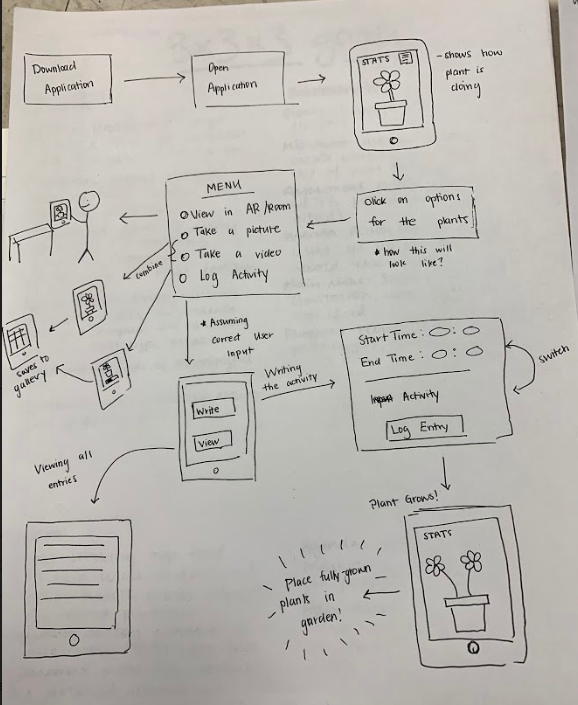 Download
Application
Open
Application
STATS
- shows how
plant is
doing
click on options
for the plants
* how this will
look like?
MENU
View in AR/Room
Take a picture
Take a video
Log Activity
combine
saves to
gallery
* Assuming
correct user
input
Write
View
Writing
the activity
Start Time: :
End Time: :
Activity
Log Entry
switch
Viewing all
entries
Plant Grows!
STATS
Place fully-grown
plants in
garden!